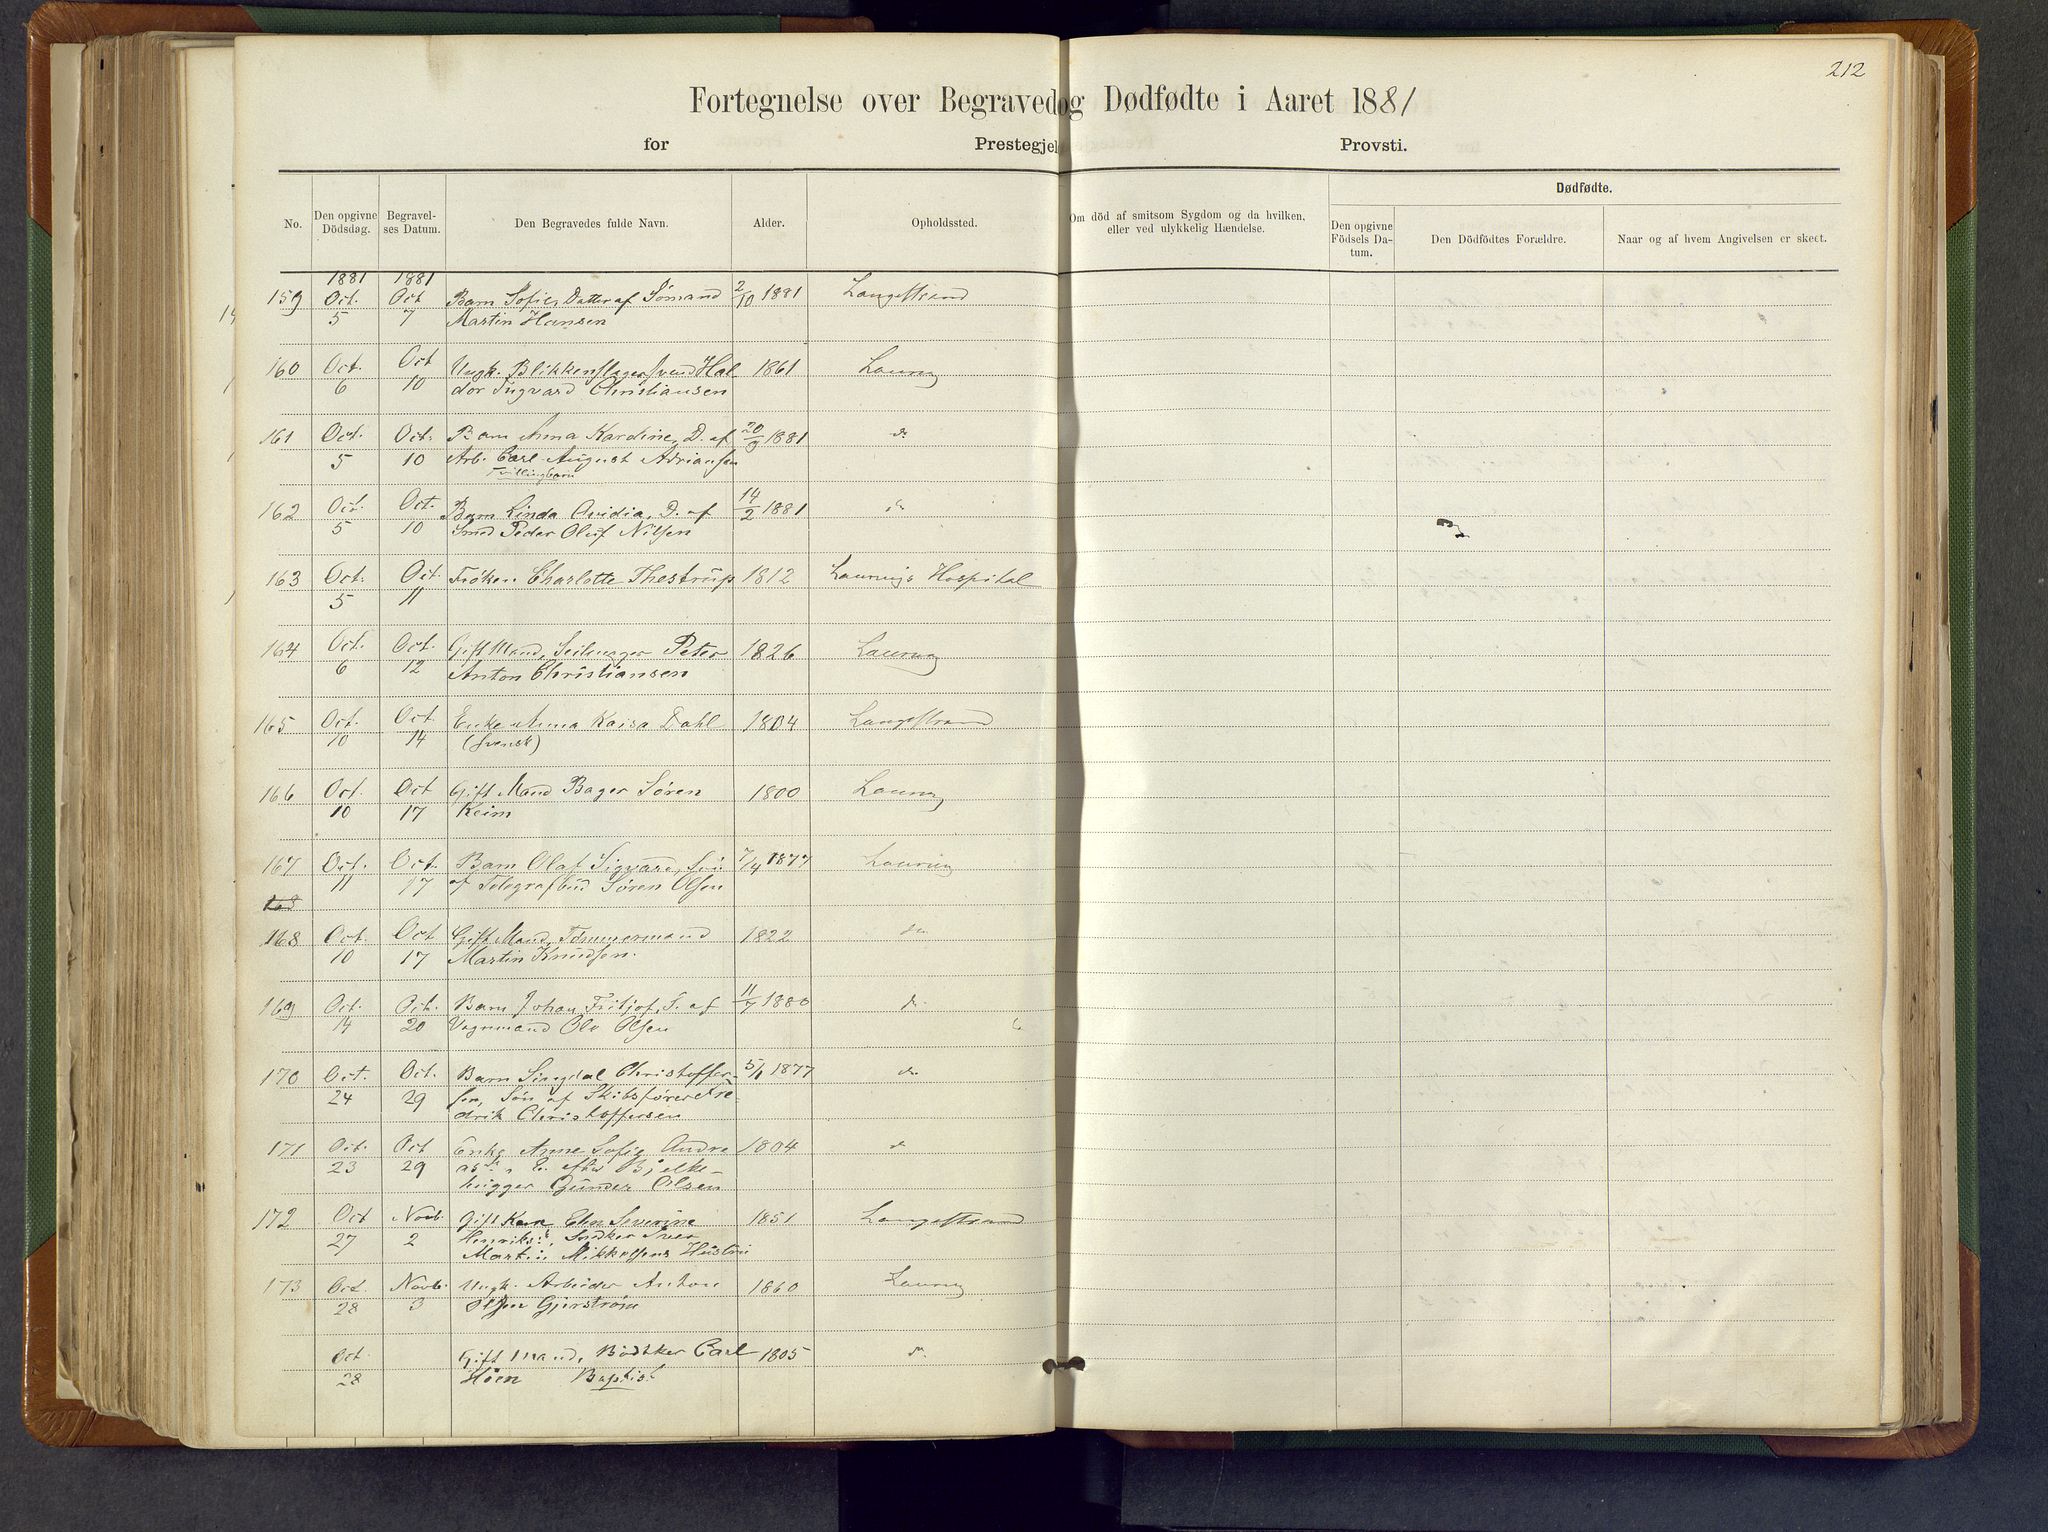 212
Fortegnelse over Begravede og Dødfødte i Aaret 1881
for Prestegjel Provsti.
No. Den opgivne Dödsdag. Begravelses Datum. Den Begravedes fulde Navn. Alder. Opholdssted. Om död af smitsom Sygdom og da hvilken, eller ved ulykkelig Hændelse. Dødfødte. Den opgivne Födsels Datum. Den Dödfödtes Forældre. Naar og af hvem Angivelsen er skeet.
1881 1881
159 Oct. Oct Barn Sofie, Datter af Sömand 2/10 1881 Langestrand
5 7 Martin Hansen
160 Oct. Oct Ungk. Blikkenslagersvend Hal 1861 Laurvig
6 10 dor Ingvard Christiansen
161 Oct. Oct. Barn Anna Kardine, D. af 20/9 1881 do
5 10 Arb. Carl August Adriansen
Tvillingbarn
162 Oct. Oct. Barn Linda Ovidia, D. af 14/2 1881 do
5 10 Smed Peder Oluf Nilsen
163 Oct. Oct. Frøken Charlotte Thestrup 1812 Laurvigs Hospital
5 11
164 Oct. Oct. Gift Mand, Seilmager Peter 1826 Laurvig
6 12 Anton Christiansen
165 Oct. Oct. Enke Anna Kaisa Dahl 1804 Langestrand
10 14 (Svensk)
166 Oct. Oct Gift Mand Bager Søren 1800 Laurvig
10 17 Keim
167 Oct. Oct. Barn Olaf Sigvard, Søn 7/4 1877 Laurvig
11 17 af Telegrafbud Søren Olsen
168
168 Oct. Oct Gift Mand, Tømmermand 1822 do
10 17 Martin Knudsen.
169 Oct. Oct. Barn Johan Fritjof, S. af 11/7 1880 do
14 20 Vognmand Ole Olsen
170 Oct. Oct. Barn Christoffer- 5/1 1877 do
24 29 sen, Søn af Skibsfører Fre-
drik Christoffersen
171 Oct. Oct Enke Anne Sofie Andre 1804 do
23 29 E. efter Bjelke-
hugger Gunder Olsen
172 Oct Novb. Gift Kone Elen Severine 1851 Langestrand
27 2 Henriks. Iver
Martin Mikkelsens Hustru
173 Oct. Novb. Ungk. Arbeider Anton 1860 Laurvig
28 3 Olsen Gjerstrøm
Oct. Gift Mand, Bødtker Carl 1805 do
28 Höen Baptist